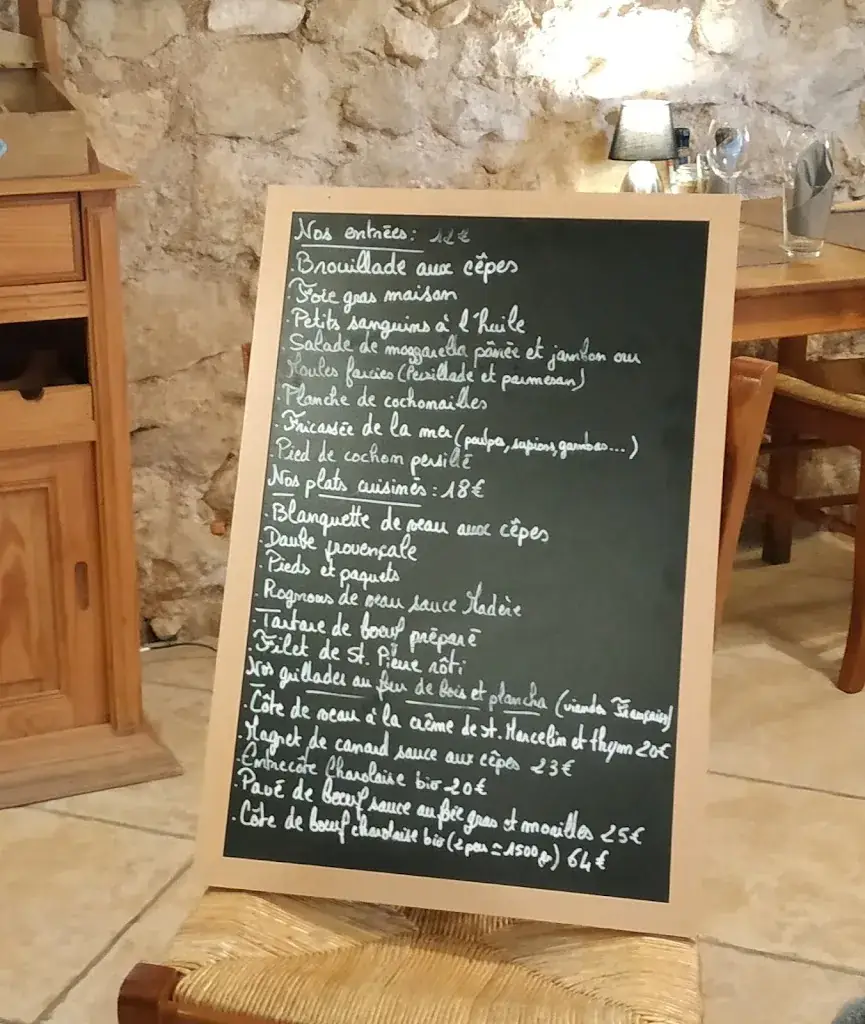 Nos entrées: 12€
. Brouillade aux cêpes
. Foie gras maison
. Petits sanguins à l'huile
. Salade de mozzarella pânée et jambon cru
. Moules farcies (Persillade et parmesan)
. Planche de cochonailles
. Fricassée de la mer (poulpes, supions, gambas...)
. Pied de cochon persillé
Nos plats cuisinés: 18€
. Blanquette de veau aux cêpes
. Daube provençale
. Pieds et paquets
. Rognons de veau sauce Madère
. Tartare de boeuf préparé
. Filet de St. Pierre rôti
Nos grillades au feu de bois et plancha (viandes Françaises)
. Côte de veau à la crème de st. Marcelin et thym 20€
. Magret de canard sauce aux cêpes 23€
. Entrecôte Charolaise bio 20€
. Pavé de boeuf sauce au foie gras et morilles 25€
. Côte de boeuf charolaise bio (2 pers ≃ 1500 gr) 64€